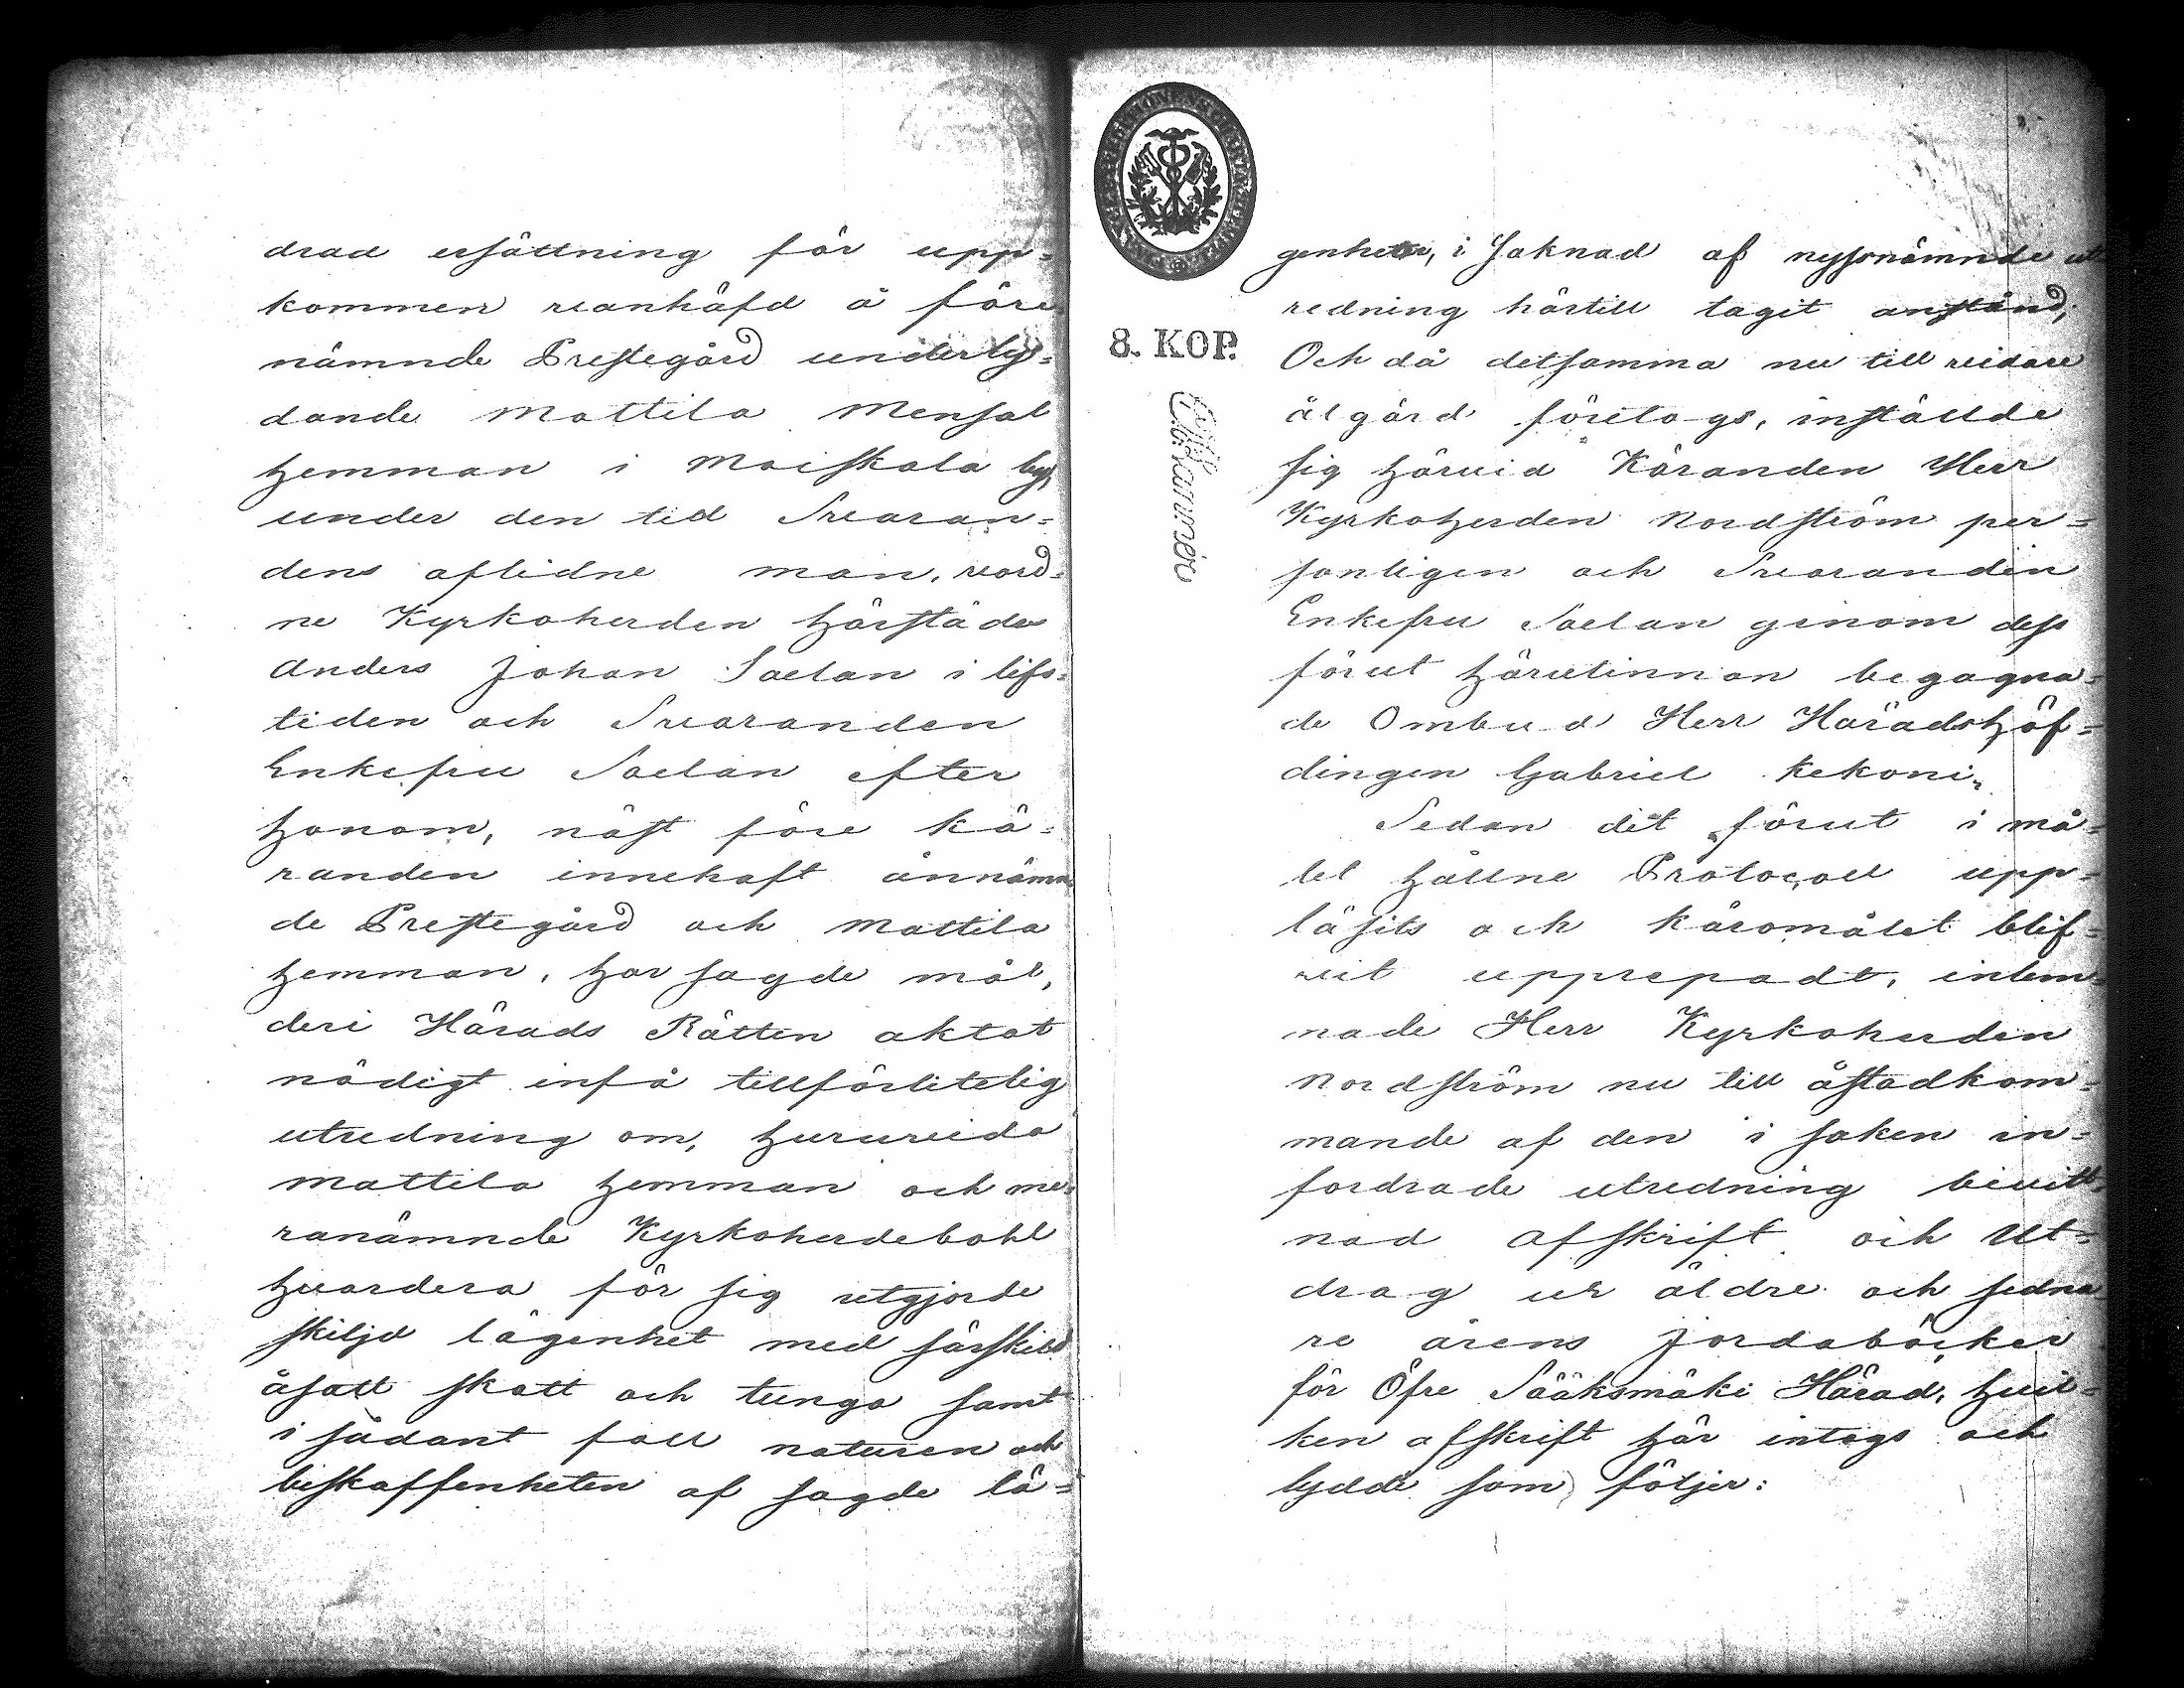 drad ersättning för upp=
kommen vanhäfd å före
nämnde Prestegård underly=
dande Mattila Mensal
hemman i Maiskala by,
under den tid Svaran=
dens aflidne man, vord=
ne Kyrkoherden härstädes
Anders Johan Saelan i lifs=
tiden och Svaranden
Enkefru Saelan efter
honom, näst före Kä=
randen innehaft ännämn
de Prestegård och Mattila
hemman, har sagde mål,
deri Härads Rätten aktat
nödigt infå tillförlitelig
utredning om, huruvida
Mattila hemman och me=
ranämnde Kyrkoherdebohl
hvardera för sig utgjorde
skiljd lägenhet med särskild
åsatt skatt och tunga samt
i sådant fall naturen och
beskaffenheten af sagde lä=
8. KOP.
genheter, i saknad af nyssnämnde ut
redning härtill tagit anstånd;
Och då detsamma nu till vidare
åtgärd företogs, inställde
sig härvid Käranden Herr
Kyrkoherden Nordström per=
sonligen och Svaranden
Enkefru Saelan genom dess
förut härutinnan begagna=
de Ombud Herr Häradshöf=
dingen Gabriel Kekoni.
Sedan det förut i må=
let hållne Protocoll upp=
läsits och käromålet blif=
vit upprepadt, inlem=
nade Herr Kyrkoherden
Nordström nu till åstadkom=
mande af den i saken in=
fordrade utredning bevitt=
nad afskrift och Ut=
drag ur äldre och sedna
re årens Jordaböcker
för Öfre Sääksmäki Härad, hvil=
ken afskrift här intogs och
lydde som följer: